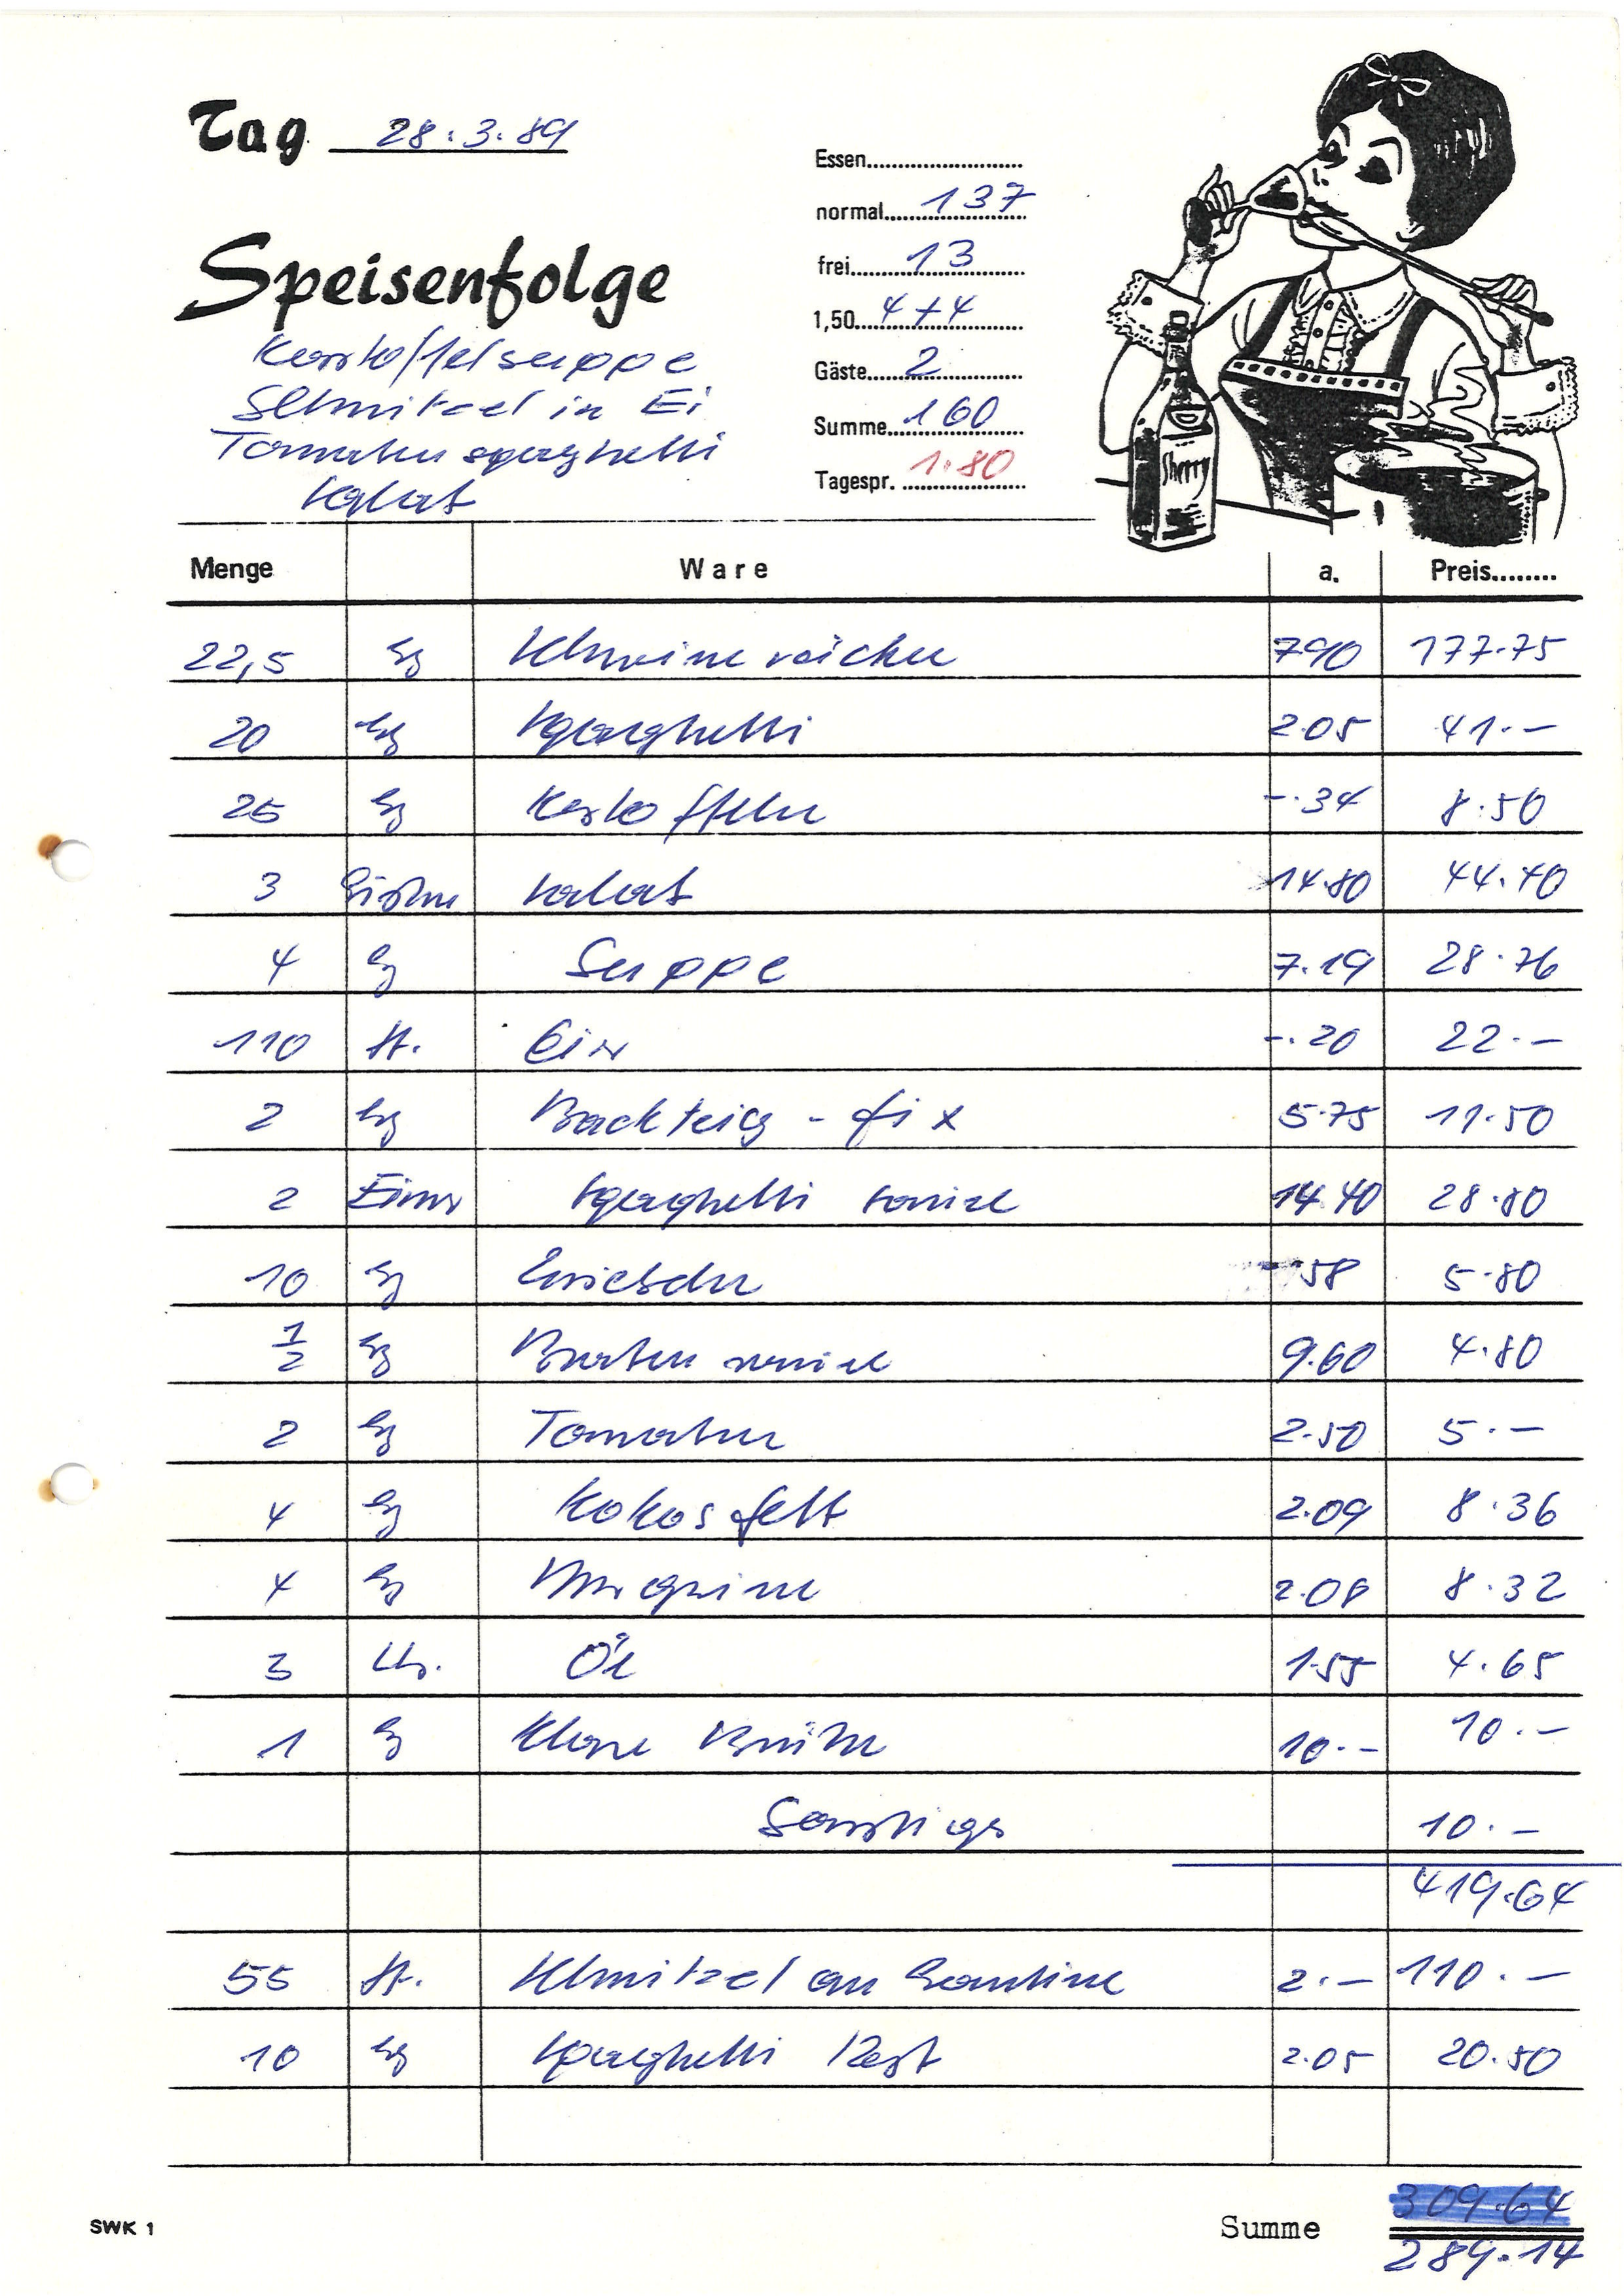 Tag 28.3.89
Essen
normal 137
frei 13
1,50 4+4
Gäste 2
Summe 160
Tagespr. 1.80
Speisenfolge
Kartoffelsuppe
Schnitzel in Ei
Tomatenspaghetti
Salat
Sherry
Menge Ware a. Preis
22,5 kg Schweinerücken 7.90 177.75
20 kg Spaghetti 2.05 41.–
25 kg Kartoffeln –.34 8.50
3 Salat 14.80 44.40
4 kg Suppe 7.19 28.76
110 St. Eier –.20 22.–
2 kg Backteig-fix 5.75 11.50
2 Eimer Spaghetti sauce 14.40 28.80
10 kg Zwiebeln –.58 5.80
1/2 kg Bratensauce 9.60 4.80
2 kg Tomaten 2.50 5.–
4 kg Kokosfett 2.09 8.36
4 kg Margarine 2.08 8.32
3 Ltr. Öl 1.55 4.65
1 kg Klare Brühe 10.– 10.–
Sonstiges 10.–
419.64
55 St. Schnitzel an Kantine 2.– 110.–
10 kg Spaghetti Rest 2.05 20.50
SWK 1
Summe 309.64
289.14